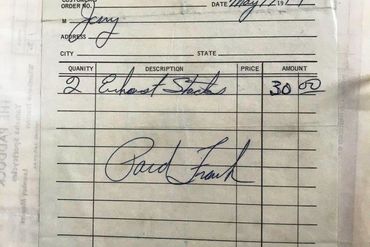 CUSTOMERS
ORDER NO. DATE May 19
M Jerry
ADDRESS
CITY STATE
QUANTITY DESCRIPTION PRICE AMOUNT
2 Exhaust Stacks 30 00
Paid Frank
THE PADDOCK